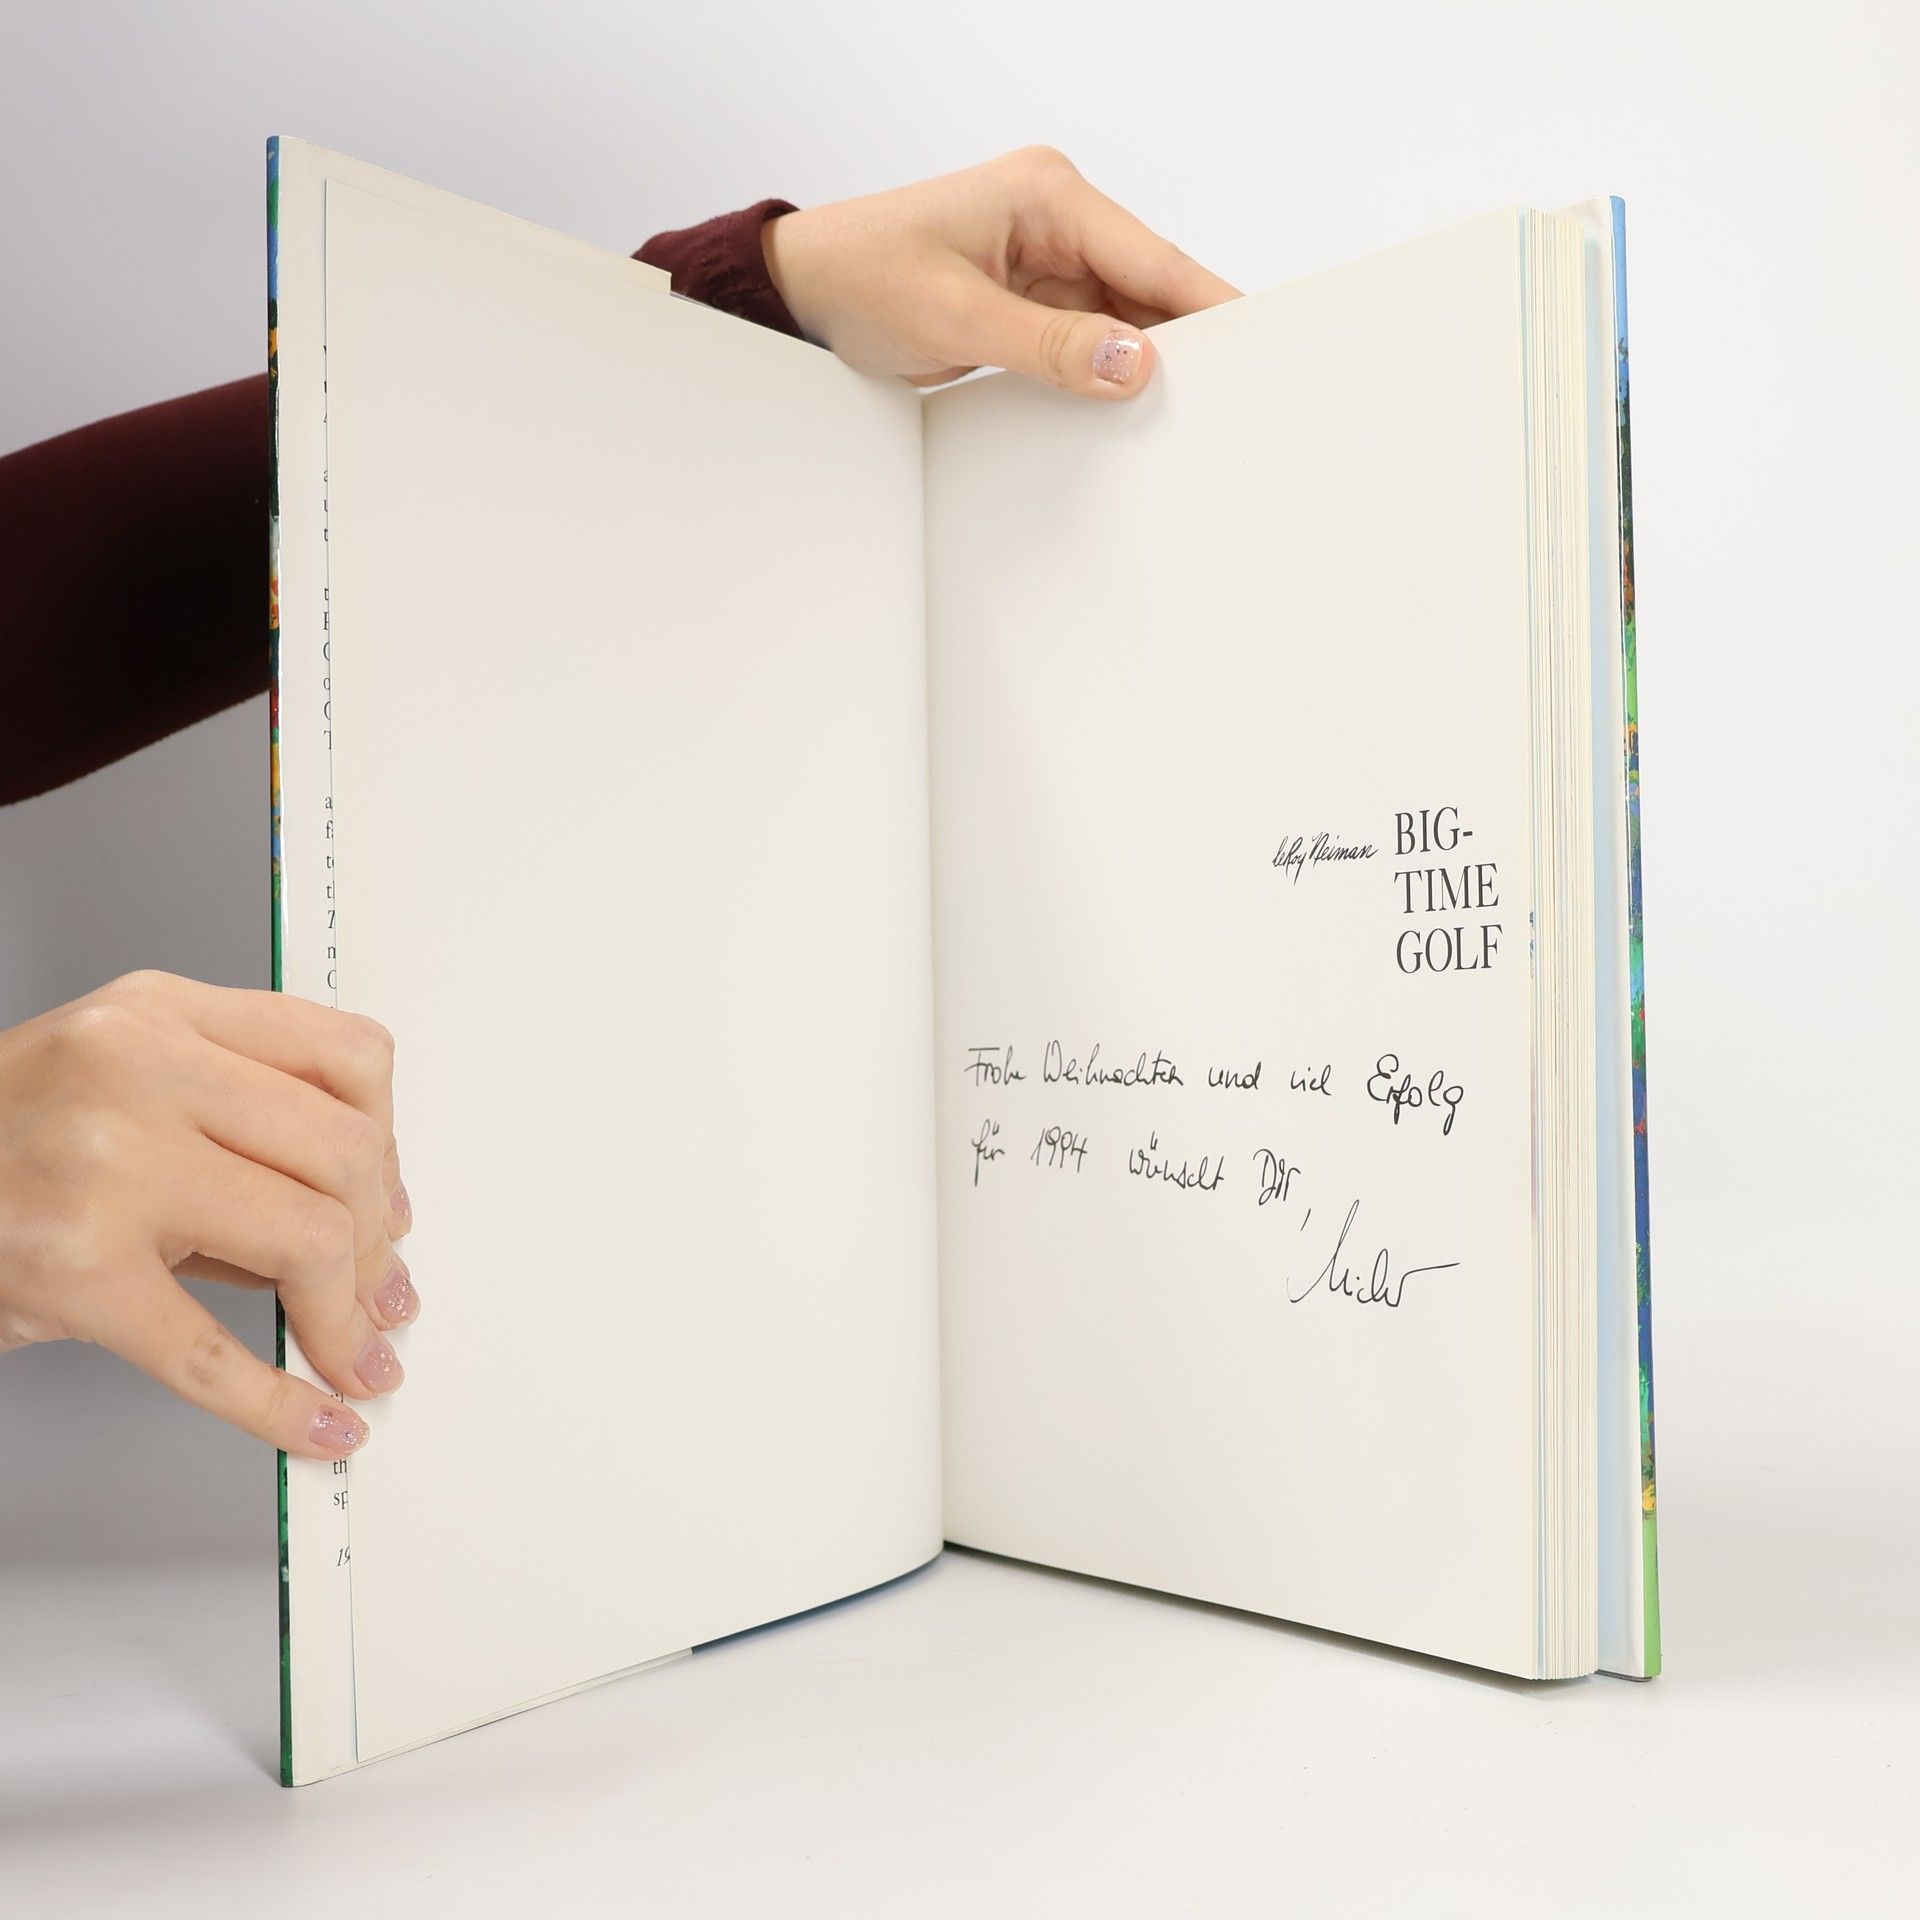 leRoy Neiman
BIG-
TIME
GOLF
Frohe Weihnachten und viel Erfolg
für 1994 wünscht Dir,
th
sp
19